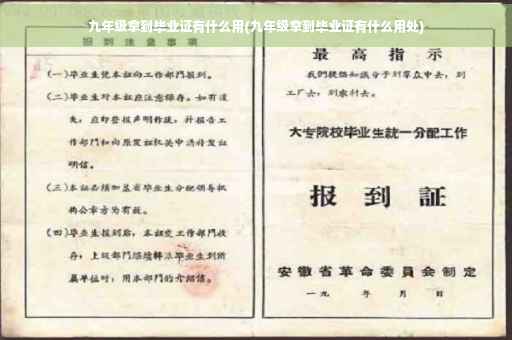 九年级拿到毕业证有什么用(九年级拿到毕业证有什么用处)
报到注意事项
(一)毕业生凭本证向工作部门报到。
(二)毕业生对本证应注意保存。如有遗
失,应即登报声明作废,并报告工
作部门和向原发证机关申请补发证
明信。
(三)本证必须加盖省毕业生分配领导机
构公章方为有效。
(四)毕业生报到后,本证交工作部门收
存;上级部门继续转派毕业生到所
属单位时,用本部门的介绍信。
最高指示
我们提倡知识分子到群众中去,到
工厂去,到农村去。
大专院校毕业生統一分配工作
报到証
安徽省革命委員会制定
一九 年 月 日